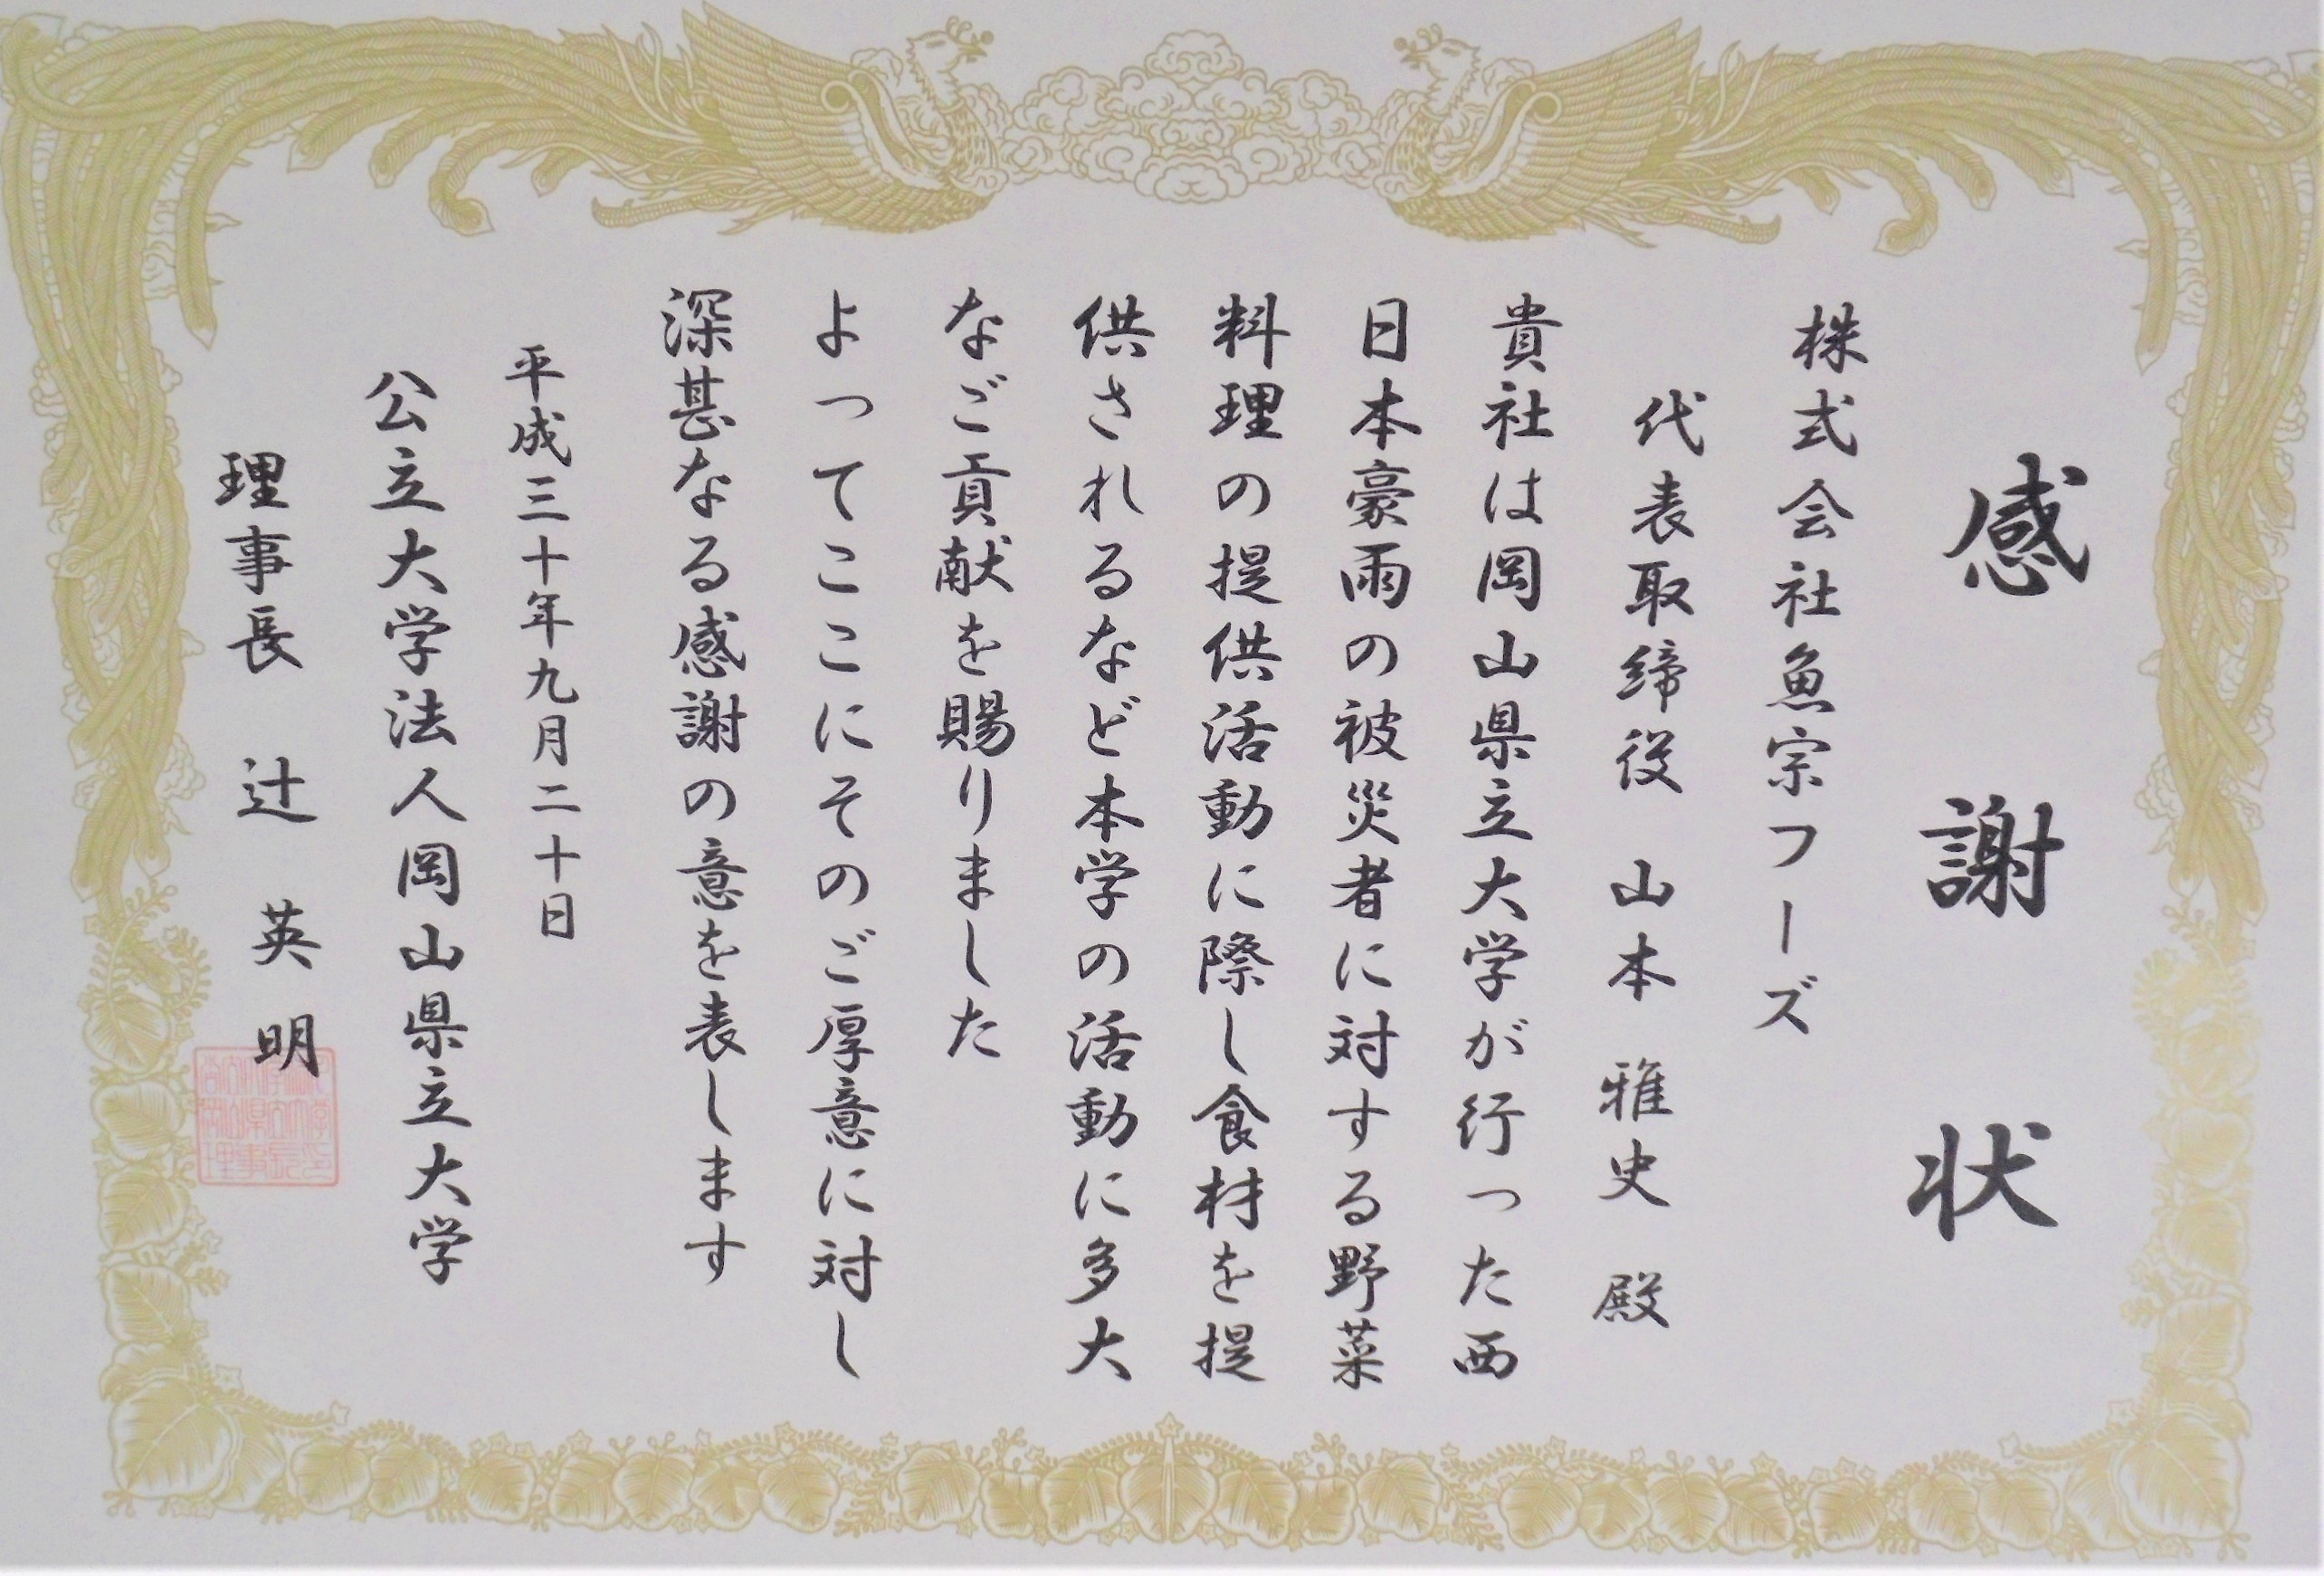 感謝状
株式会社魚宗フーズ
代表取締役 山本 雅史 殿
貴社は岡山県立大学が行った西
日本豪雨の被災者に対する野菜
料理の提供活動に際し食材を提
供されるなど本学の活動に多大
なご貢献を賜りました
よってここにそのご厚意に対し
深甚なる感謝の意を表します
平成三十年九月二十日
公立大学法人岡山県立大学
理事長 辻 英明